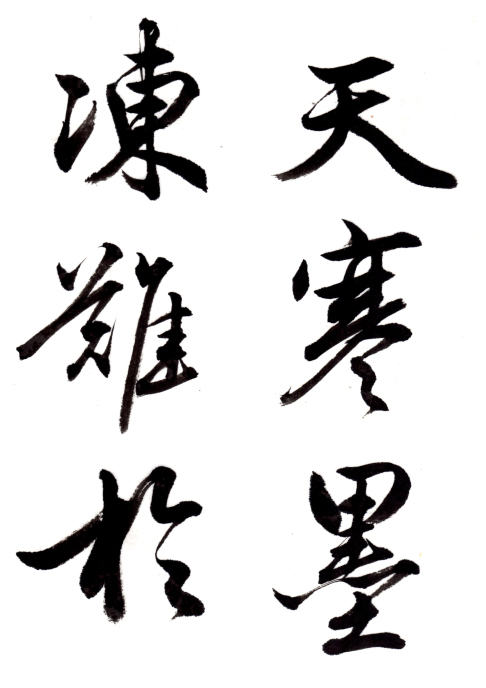 天寒墨
凍難於